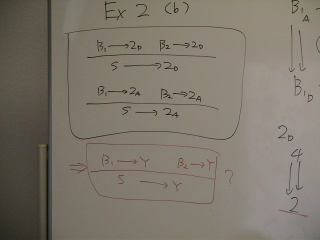 Ex 2 (b)
B₁ → 2D B₂ → 2D
S → 2D
B₁ → 2A B₂ → 2A
S → 2A
⇒ B₁ → Y B₂ → Y
S → Y ?
B₁A
B₁D
2D
4
2